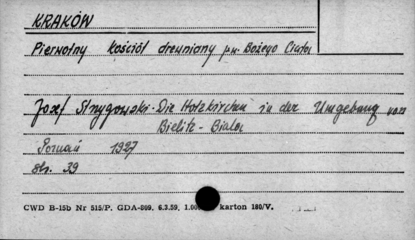 KRAKÓW
Pierwotny kościół drewniany p.w. Bożego Ciała
Josef Strzygowski: Die Holzkirchen in der Umgebung von
Bielitz - Biala
Poznań 1927
str. 39
CWD B-15b Nr 515/P. GDA-809. 6.3.59. 1.00 karton 180/V.